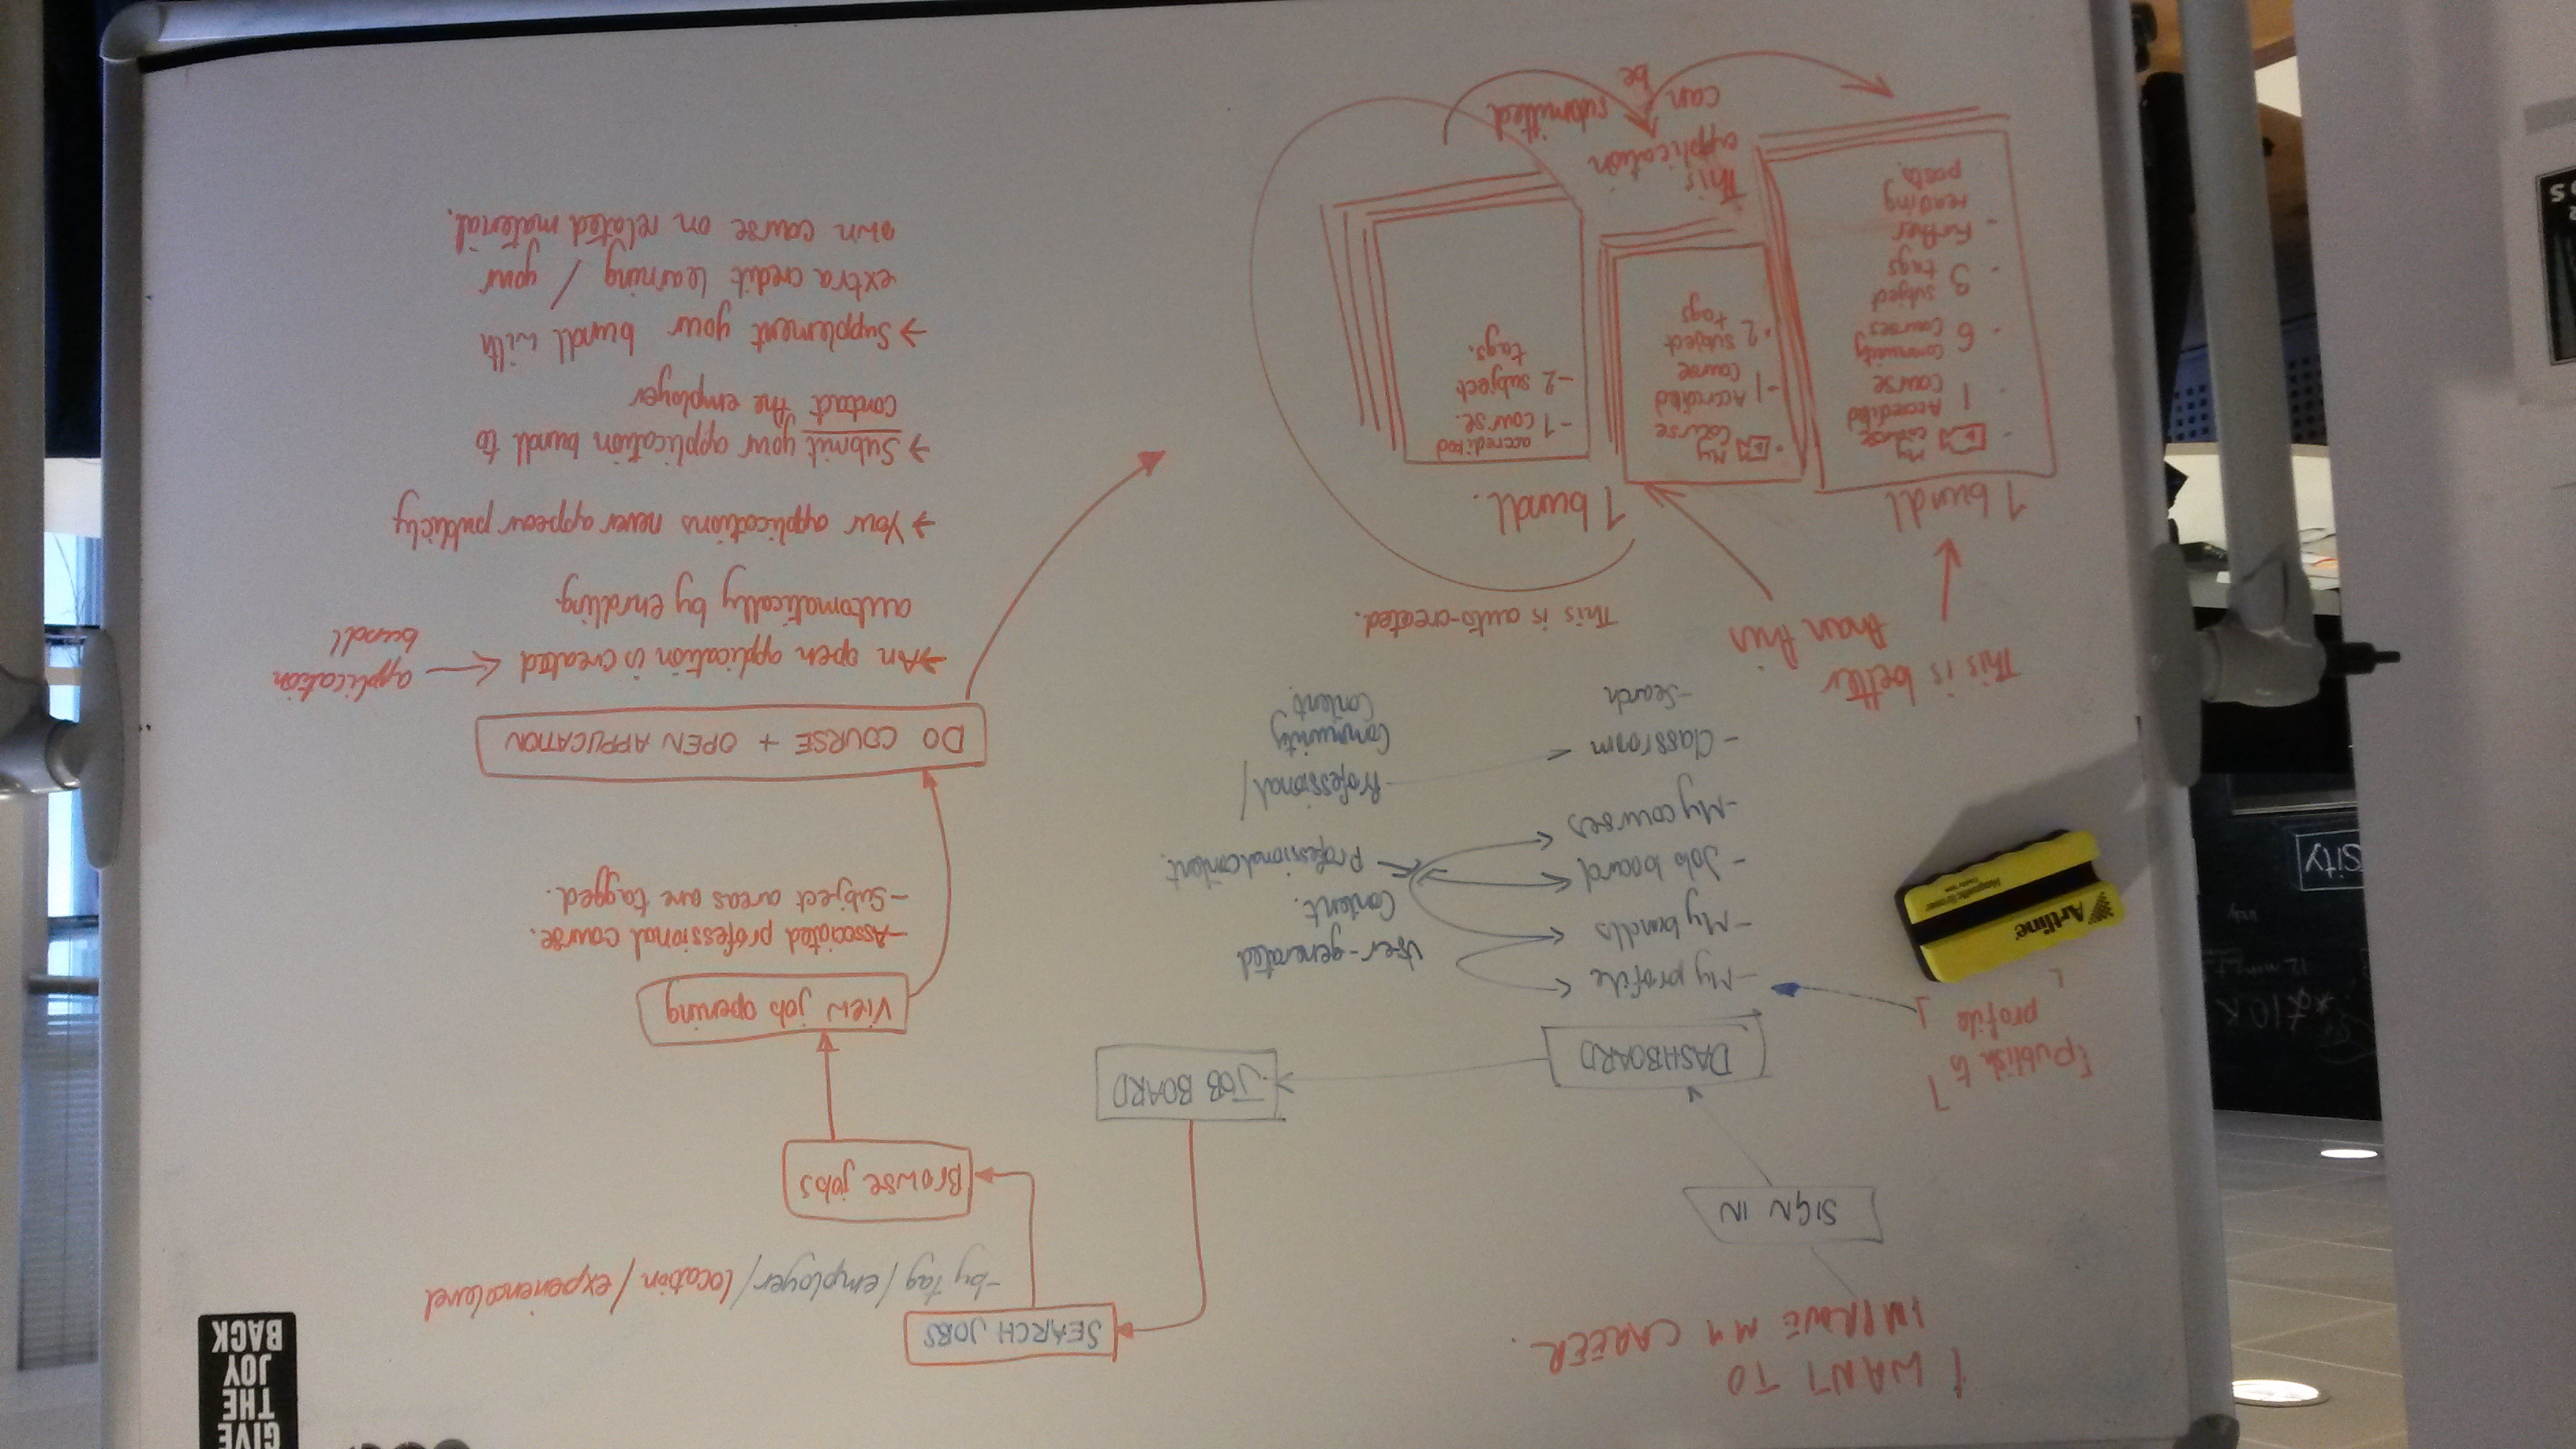 I WANT TO
IMPROVE MY CAREER.
SIGN IN
DASHBOARD
[publish to
profile]
-My profile
-My bundls
-Job board
-My courses
-Classroom
-Search
User-generated
Content.
Professional content.
Professional/
Community
Content.
JOB BOARD
SEARCH JOBS
-by tag/employer/location/experience level
Browse jobs
View job opening
-Associated professional course.
-Subject areas are tagged.
DO COURSE + OPEN APPLICATION
→An open application is created
automatically by enrolling.
← application
bundl
→ Your applications never appear publicly.
→ Submit your application bundl to
contact the employer
→ Supplement your bundl with
extra credit learning / your
own course on related material.
This is better
than this
This is auto-created.
1 bundl
- My
course
- 1 Accredited
Course
- 6 Community
Courses
- 3 subject
tags
- Further
reading
posts
- My
Course
-1 Accredited
Course
-2 subject
tags
1 bundl.
-1 accredited
course.
-2 subject
tags.
This
application
can be submitted
GIVE
THE
JOY
BACK
Artline
Magnetic Eraser
*£10K
sity